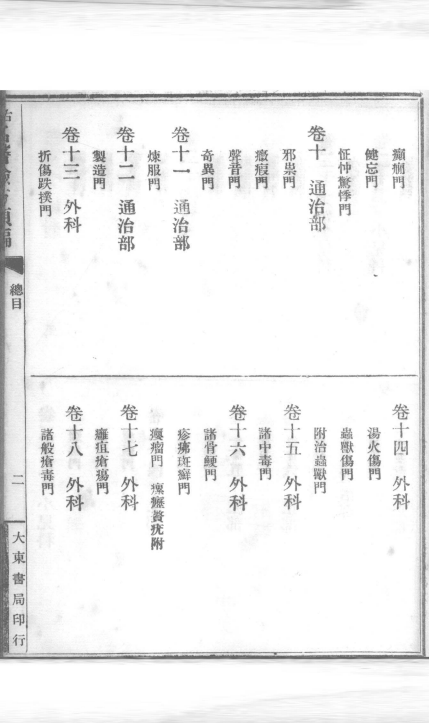 癲癇門
健忘門
怔忡驚悸門
卷十　通治部
邪祟門
癥瘕門
聲音門
奇異門
卷十一　通治部
煉服門
卷十二　通治部
製造門
卷十三　外科
折傷跌撲門
卷十四　外科
湯火傷門
蟲獸傷門
附治蟲獸門
卷十五　外科
諸中毒門
卷十六　外科
諸骨鯁門
疹疿斑癬門
癭瘤門
卷十七　外科
癰疽瘡瘍門
卷十八　外科
諸般瘡毒門
總目
二
大東書局印行